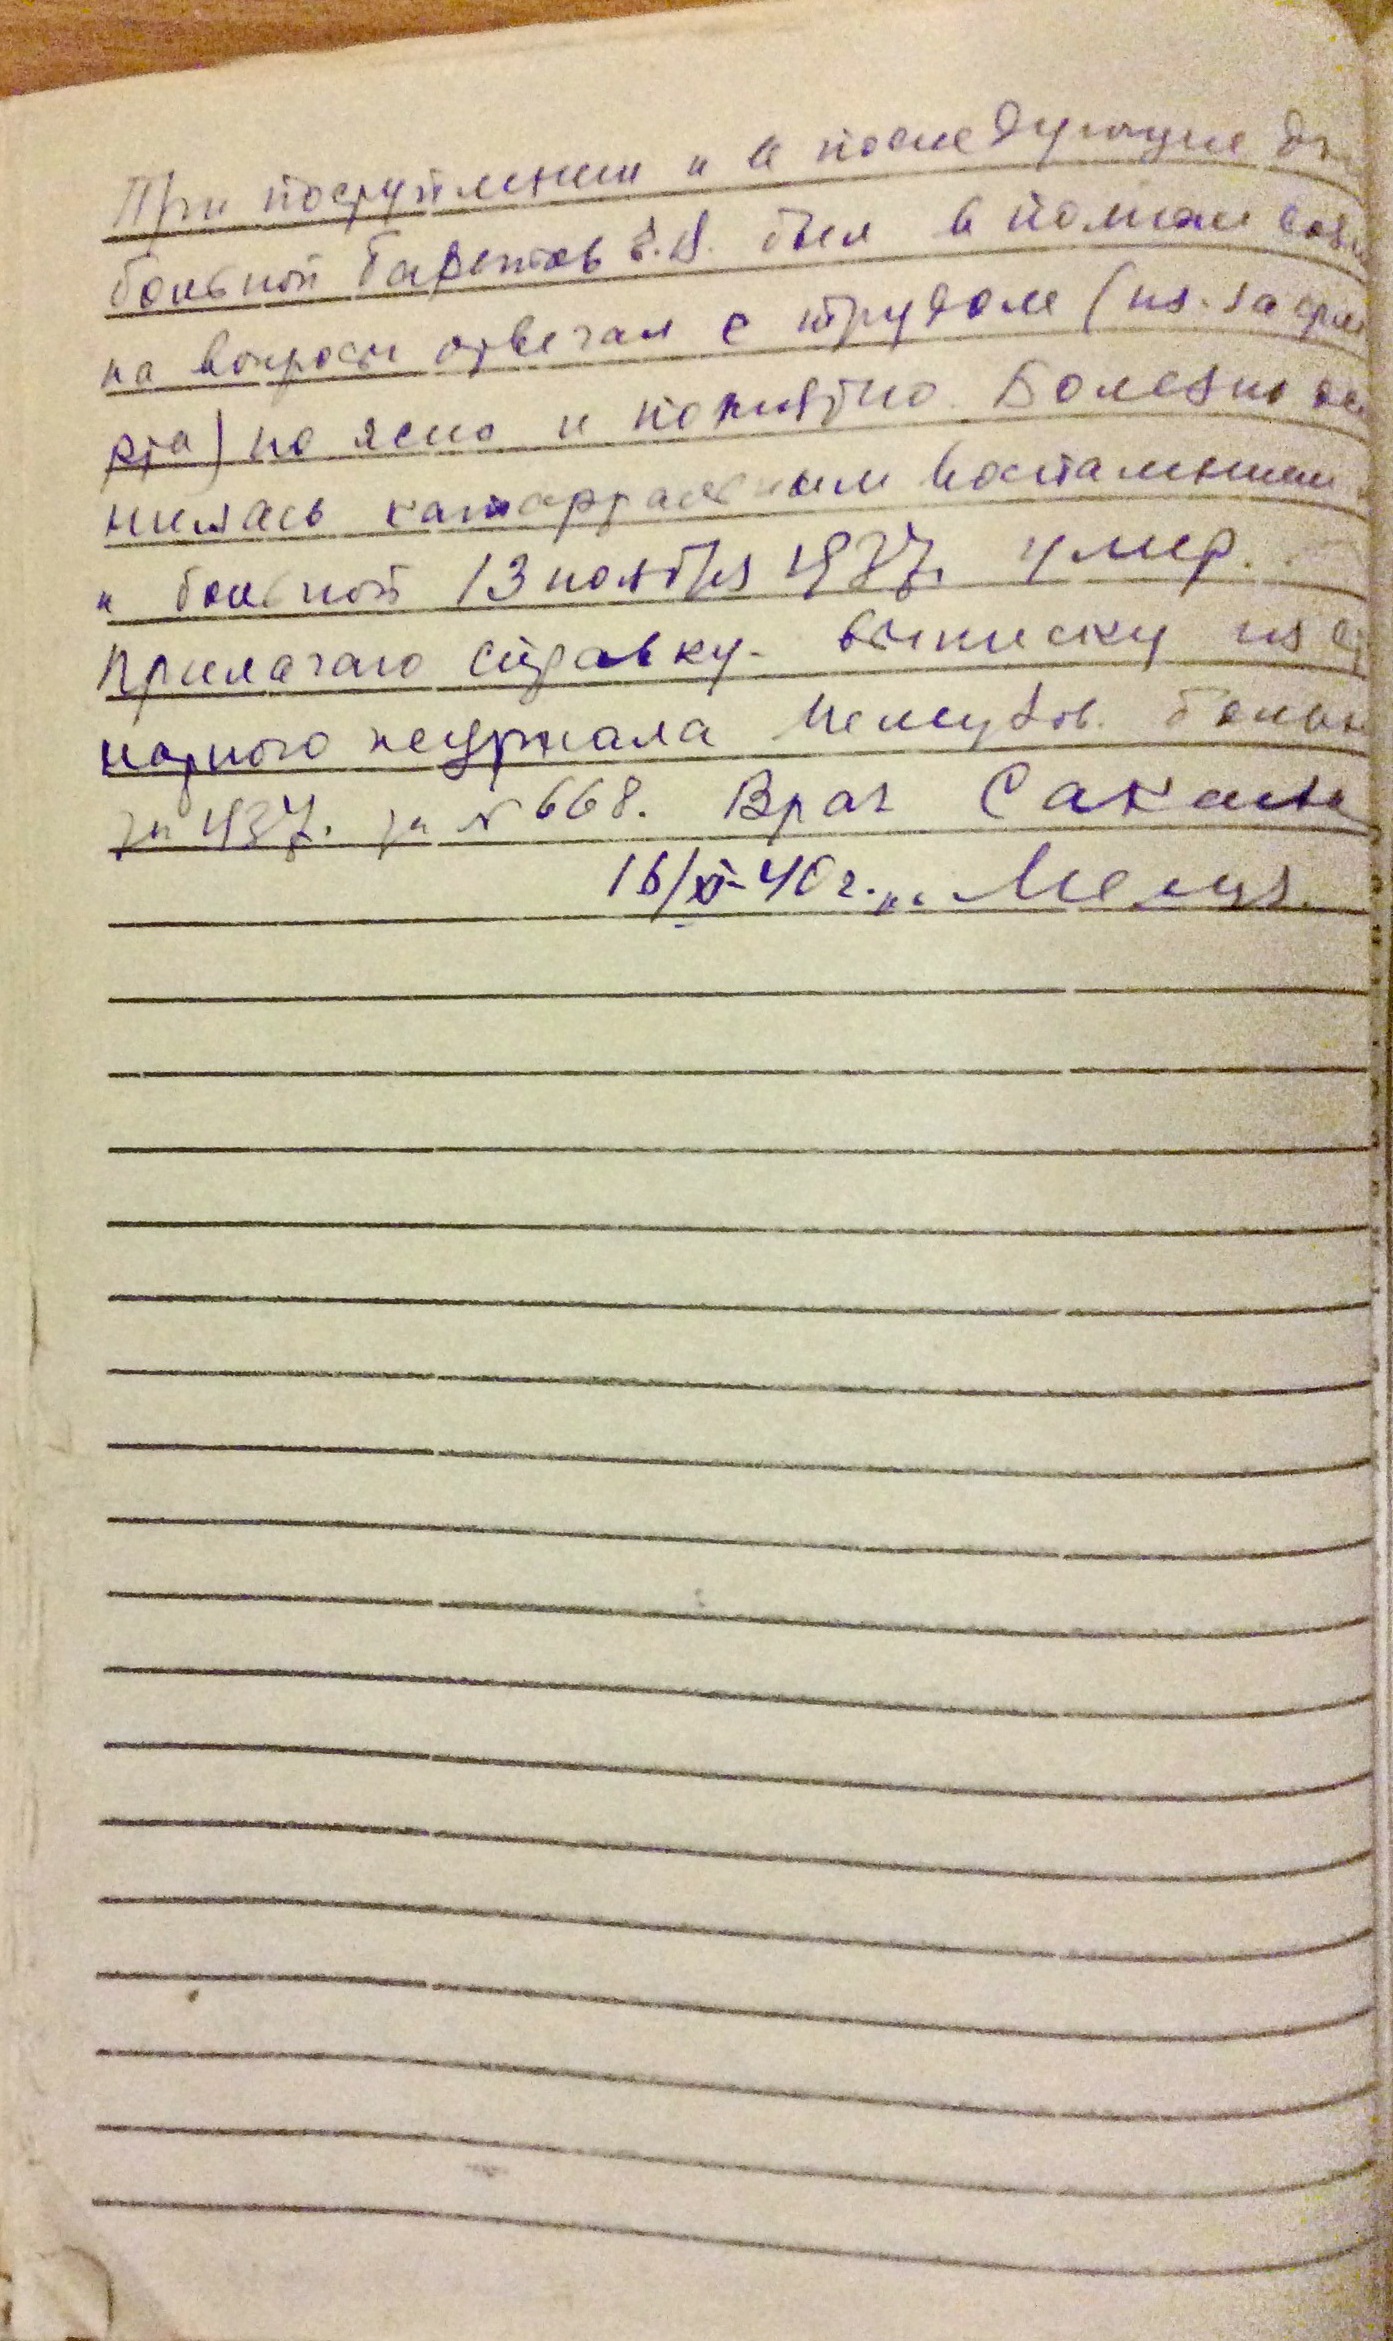 При поступлении и в последующие дн
больной Баретов был в полном созн
на вопросы отвечал с трудом (из-за
рта) но ясно и понятно. Болезнь ос
нилась катарральным воспалением
и больной 13 ноября 1937г. умер.
Прилагаю справку-выписку из
нарного журнала больн
за 1937г. за № 668. Врач
16/XI-40г.